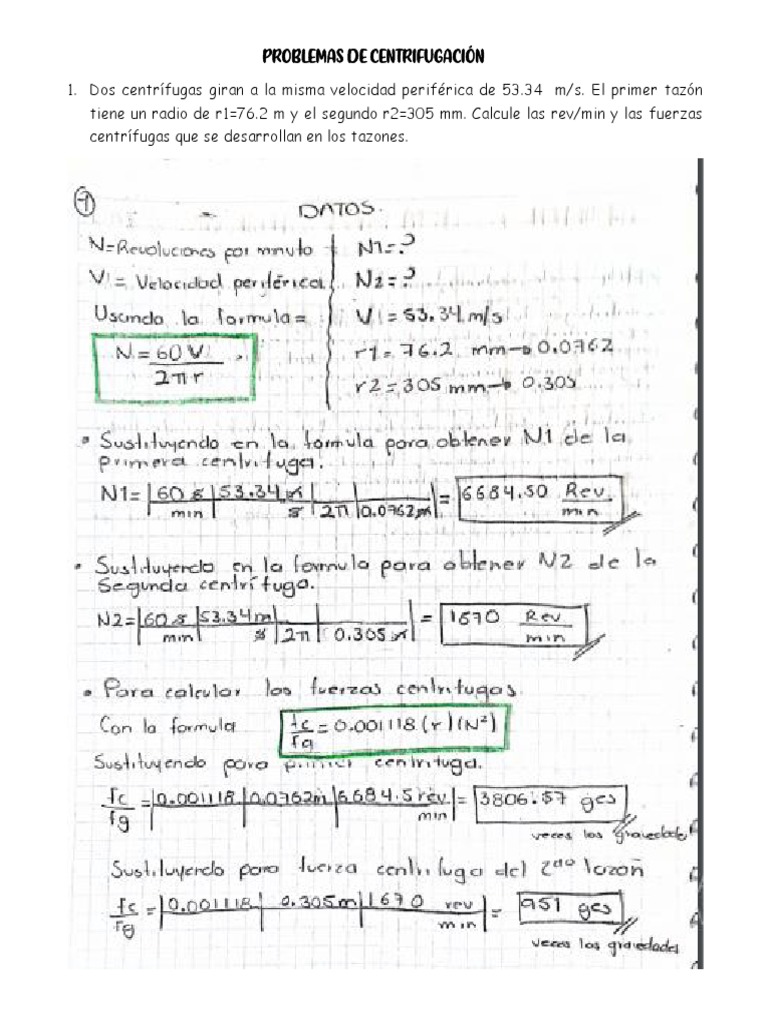 PROBLEMAS DE CENTRIFUGACIÓN
1. Dos centrífugas giran a la misma velocidad periférica de 53.34 m/s. El primer tazón
tiene un radio de r1=76.2 m y el segundo r2=305 mm. Calcule las rev/min y las fuerzas
centrífugas que se desarrollan en los tazones.
① DATOS.
N=Revoluciones por minuto N1=?
V = Velocidad periférica N2=?
Usando la formula= V = 53.34 m/s
N = 60 V / 2πr r1 = 76.2 mm → 0.0762
r2 = 305 mm → 0.305
• Sustituyendo en la formula para obtener N1 de la
primera centrifuga.
N1= |60 s|53.34 m| | | = 6684.50 Rev
min s |2π|0.0762 m| min
• Sustituyendo en la formula para obtener N2 de la
Segunda centrífuga.
N2= |60 s|53.34 m| | | = 1670 Rev
min s |2π| 0.305 m min
• Para calcular las fuerzas centrifugas
Con la formula fc/fg = 0.001118 (r) (N²)
Sustituyendo para primer centrifuga.
fc/fg = |0.001118|0.0762m|6684.5 rev/min| = 3806.57 ges
veces las gravedades
Sustituyendo para fuerza centrifuga del 2do tazon
fc/fg = |0.001118| 0.305m|1670 rev/min| = 951 ges
veces las gravedades